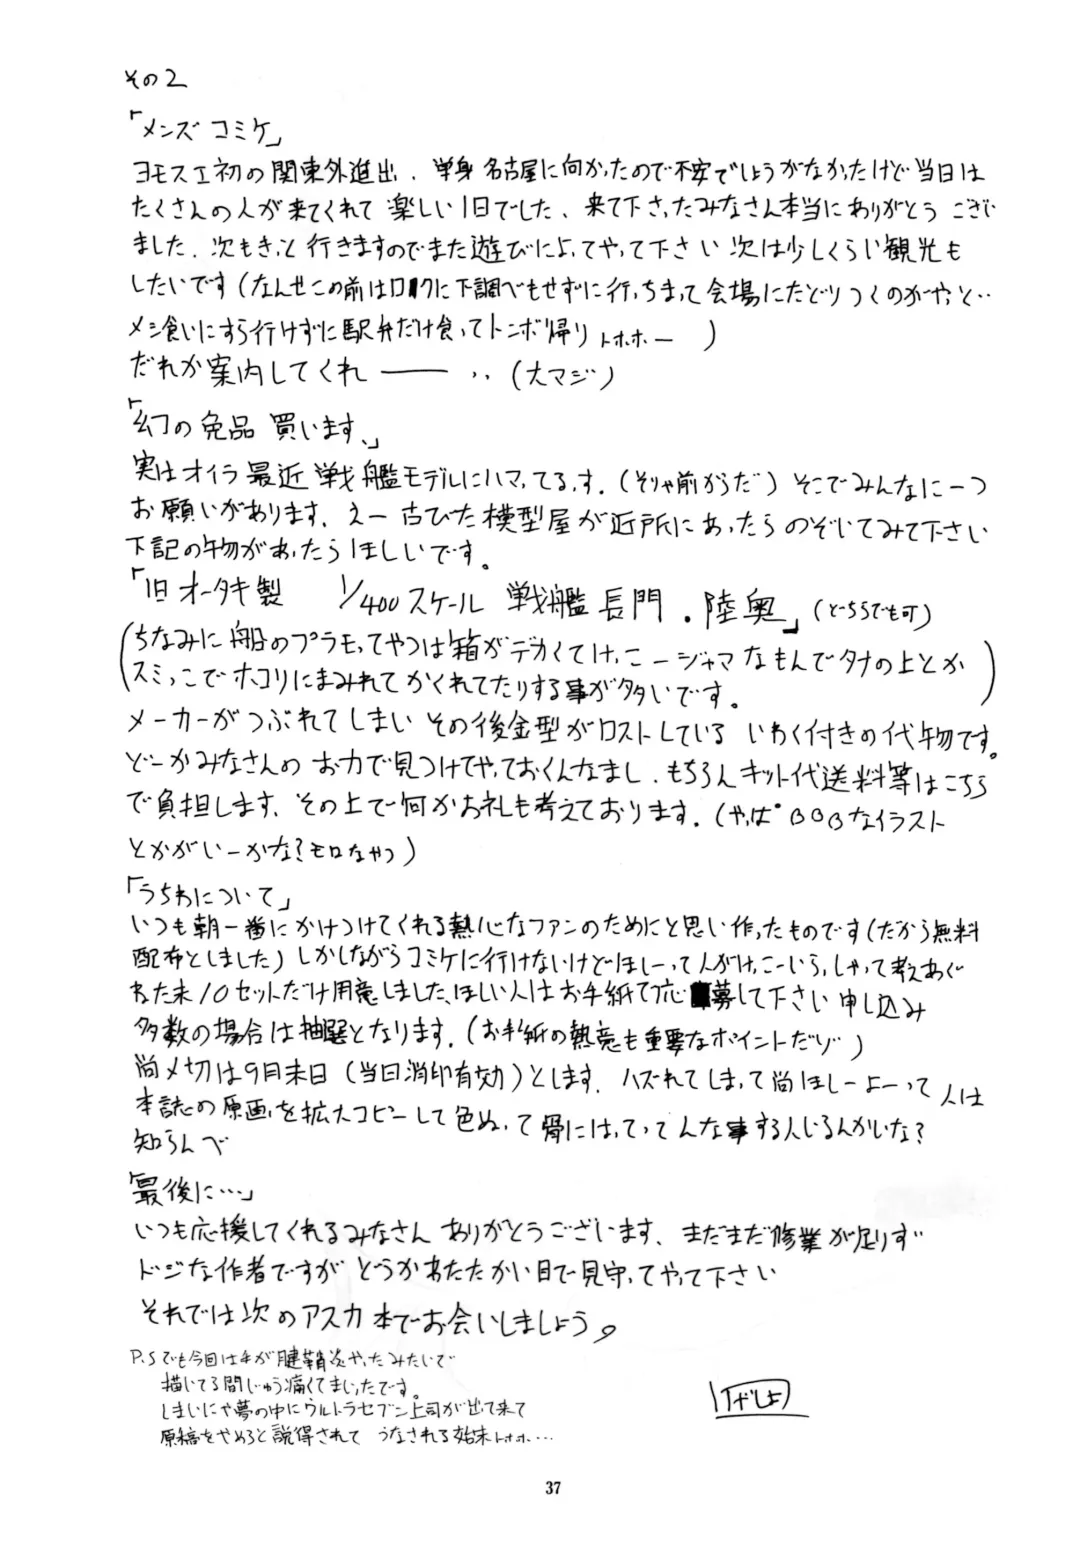 その2
「メンズコミケ」
ヨモスエ初の関東外進出、単身名古屋に向かったので不安でしょうがなかったけど当日は
たくさんの人が来てくれて楽しい1日でした、来て下さったみなさん本当にありがとうござい
ました、次もきっと行きますのでまた遊びによってやって下さい次は少しくらい観光も
したいです(なんせこの前はロクに下調べもせずに行っちまって会場にたどりつくのがやっと‥
メシ食いにすら行けずに駅弁だけ食ってトンボ帰りトホホー)
だれか案内してくれ――‥(大マジ)
「幻の逸品買います、」
実はオイラ最近戦艦モデルにハマってるっす。(そりゃ前からだ)そこでみんなに一つ
お願いがあります、えー古びた模型屋が近所にあったらのぞいてみて下さい
下記の物があったらほしいです。
「旧オータキ製 1/400スケール 戦艦長門.陸奥」(どちらでも可)
(ちなみに船のプラモってやつは箱がデカくてけっこージャマなもんでタナの上とか
スミっこでホコリにまみれてかくれてたりする事が多いです。)
メーカーがつぶれてしまいその後金型がロストしているいわく付きの代物です。
どーかみなさんのお力で見つけてやっておくんなまし、もちろんキット代送料等はこちら
で負担します、その上で何かお礼も考えております。(やっぱBOBなイラスト
とかがいーかな?モロなやつ)
「うちわについて」
いつも朝一番にかけつけてくれる熱心なファンのためにと思い作ったものです(だから無料
配布としました)しかしながらコミケに行けないけどほしーって人がけっこーいらっしゃって考えあぐ
ねた末10セットだけ用意しました、ほしい人はお手紙で応募して下さい申し込み
多数の場合は抽選となります。(お手紙の熱意も重要なポイントだゾ)
尚〆切は9月末日(当日消印有効)とします、ハズれてしまって尚ほしーよーって人は
本誌の原画を拡大コピーして色ぬって骨にはってってんな事する人いるんかいな?
知らんべ
「最後に…」
いつも応援してくれるみなさんありがとうございます、まだまだ修業が足りず
ドジな作者ですがどうかあたたかい目で見守ってやって下さい
それでは次のアスカ本でお会いしましょう。
P.Sでも今回は手が腱鞘炎やったみたいで
描いてる間じゅう痛くてまいったです。
しまいにや夢の中にウルトラセブン上司が出て来て
原稿をやめろと説得されてうなされる始末トホホ…
げしょ
37